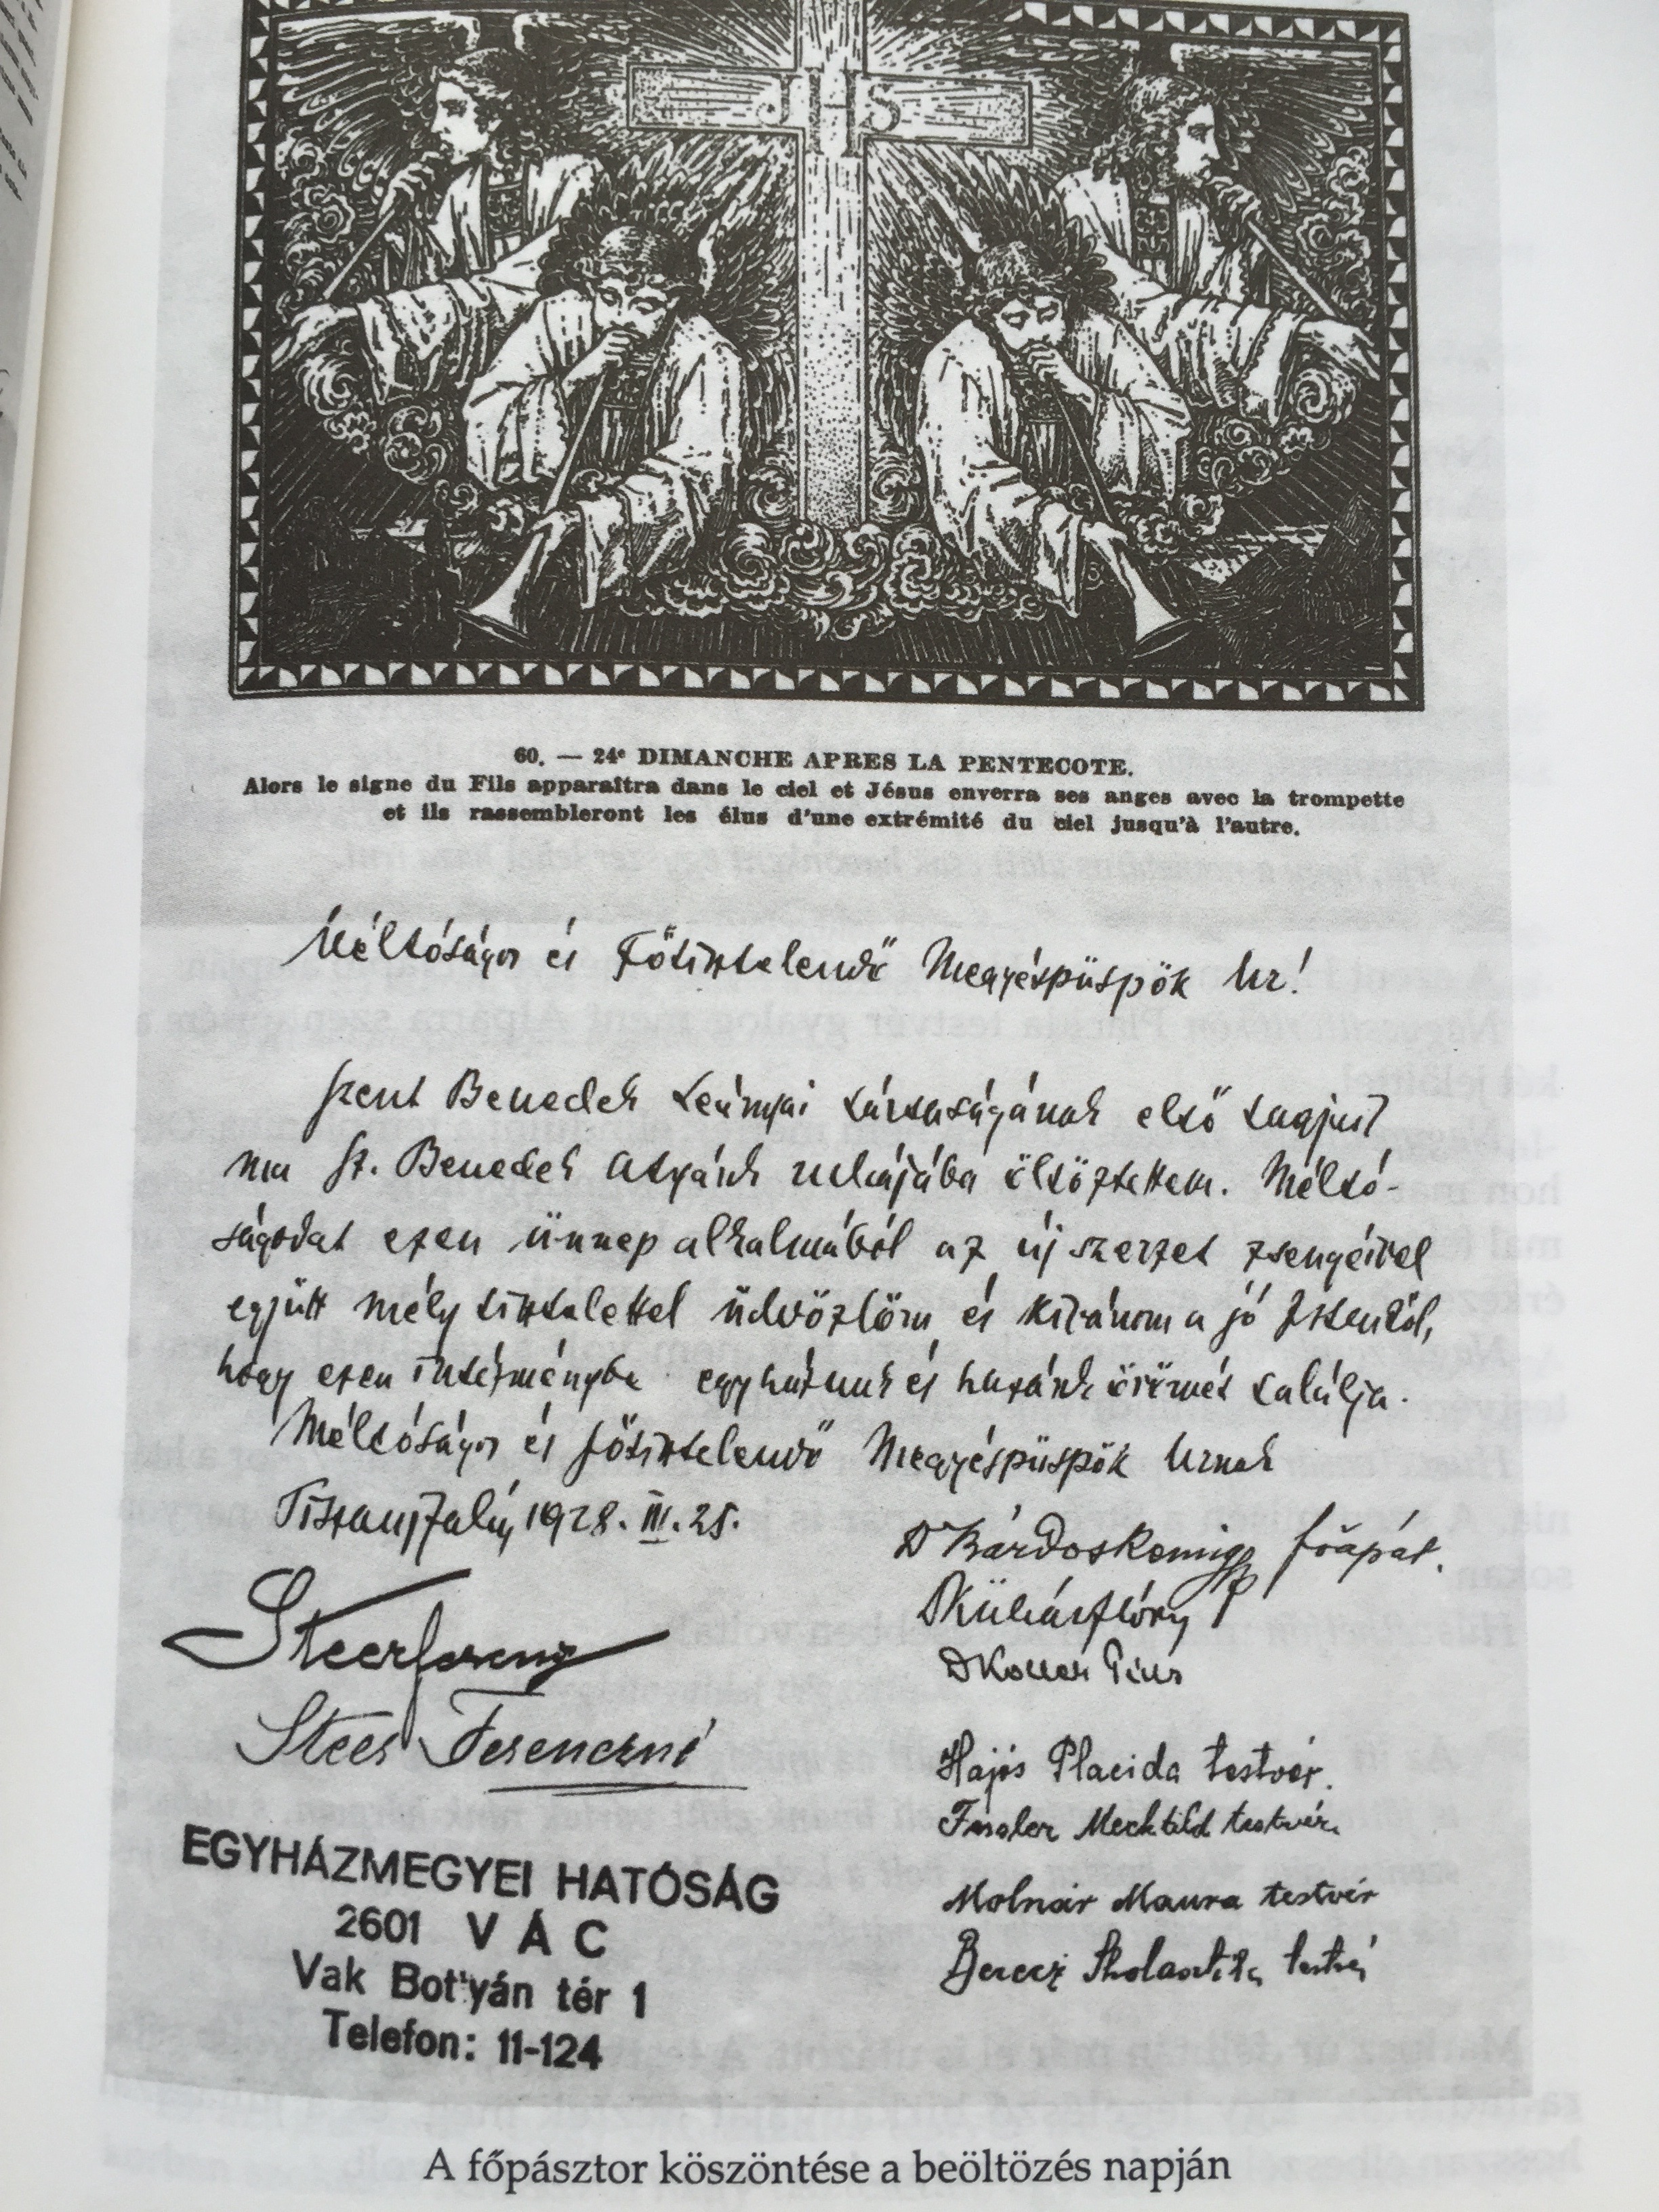 JHS
60. — 24e DIMANCHE APRES LA PENTECOTE.
Alors le signe du Fils apparaîtra dans le ciel et Jésus enverra ses anges avec la trompette
et ils rassembleront les élus d'une extrémité du ciel jusqu'à l'autre.
Méltóságos és Főtisztelendő Megyéspüspök Ur!
Szent Benedek Leányai társaságának első tagjait
ma Szt. Benedek Atyánk ruhájába öltöztettem. Méltó-
ságodat ezen ünnep alkalmából az új szerzet zsengéivel
együtt mély tisztelettel üdvözlöm és kívánom a jó Istentől,
hogy ezen intézménybe egyházunk és hazánk örömét találja.
Méltóságos és főtisztelendő Megyéspüspök Urnak
Tiszaujfalu, 1928. III. 25.
D Bárdos Remig főapát.
D Kühár Flóris
D Koller Pius
Steer Ferenc
Steer Ferenczné
Hajós Placida testvér.
Mechtild testvér.
Molnár Maura testvér
Berecz Skolastika testvér
EGYHÁZMEGYEI HATÓSÁG
2601 VÁC
Vak Bottyán tér 1
Telefon: 11-124
A főpásztor köszöntése a beöltözés napján